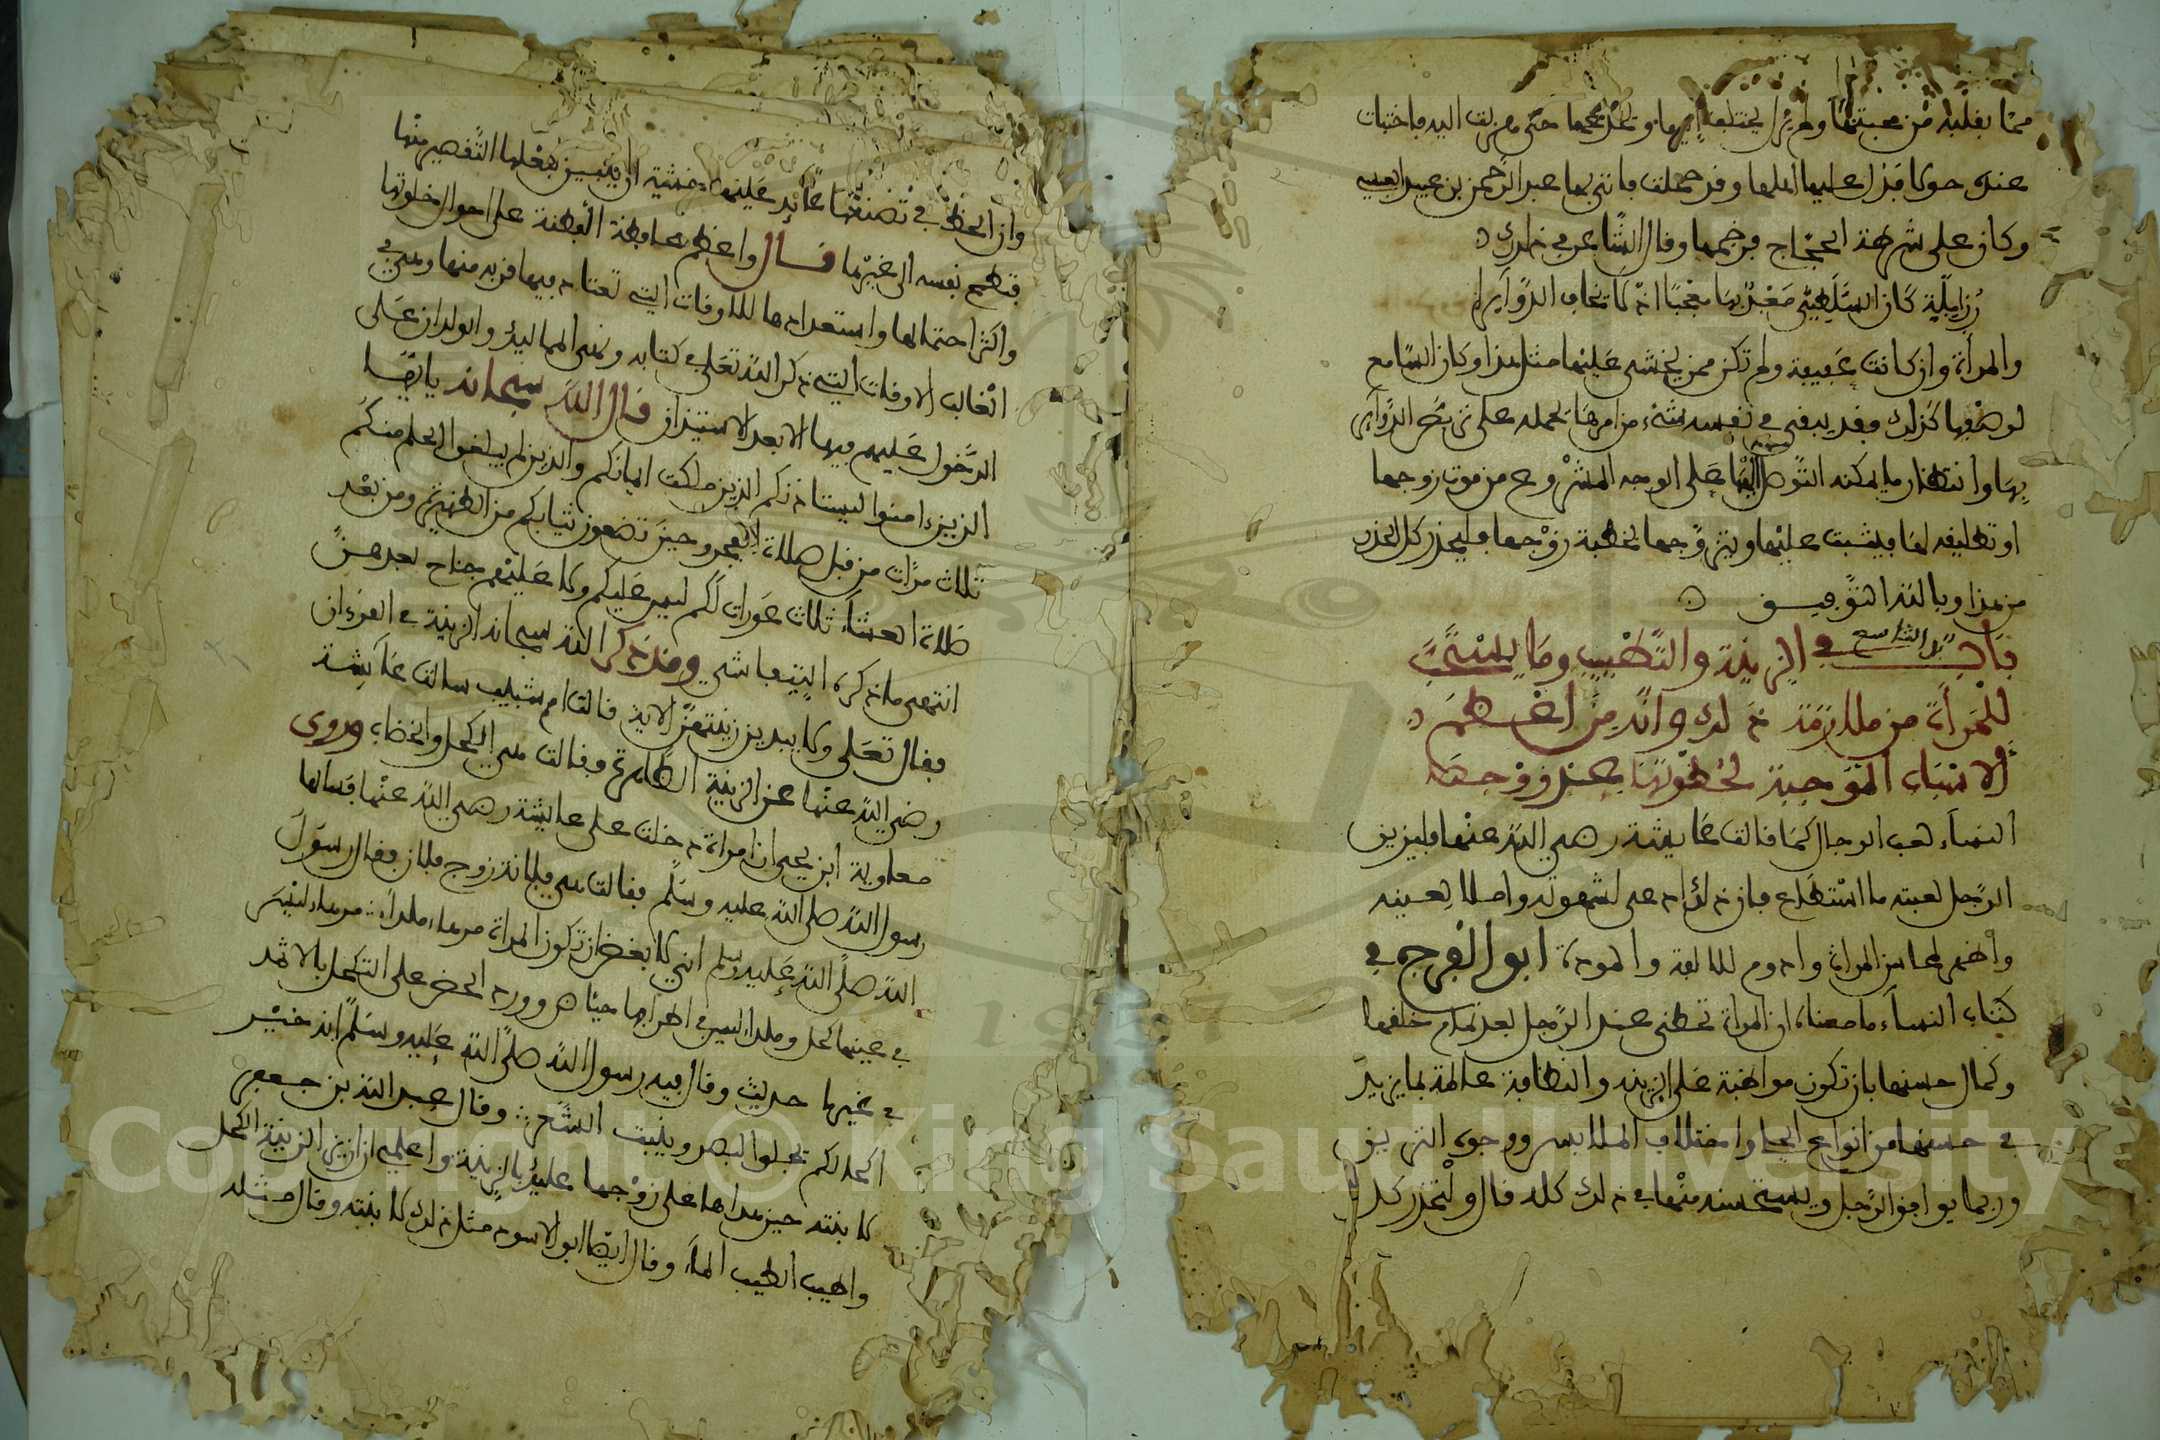 مما بقلبه من محبتها ولم يزل يختلف إليها و حتى الىه باختبات
عنده حولا فنزل عليها أهلها وقد حملت فأتى بها عبد الرحمن بن عبيد العبسي
وكان على شرطة الحجاج فرجمها وقال الشاعر في ذلك
كان السلطيني معجبا اذ لا تخاف الدوايرا
والمرأة وان كانت عفيفة ولم تكن ممن يخشى عليها مثل هذا وكان السامع
لوصفها كذلك فقد يبقى في نفسه شيء من امرها يحمله على تربص الدواير
بها وانتظار ما يمكنه التوصل اليها على الوجه المشروع من موت زوجها
او تطليقه لها فيثبت عليها ويتزوجها بخطبة زوجها فليحذر كل الحذر
من هذا وبالله التوفيق
باب التاسع في الزينة والتطيب وما يستحب
للمرأة من ملازمة ذلك وانه من اعظم
الاشياء الموجبة لحظوتها عند زوجها
النساء لعب الرجال كما قالت عايشة رضي الله عنها فليزين
الرجل لعبته ما استطاع فان ذلك ادعى لشهوته واملا لعينه
واظهر لمحاسن المراة وادوم للالفة والمودة ابو الفرج في
كتاب النساء ما معناه ان المراة تحظى عند الرجل بعد تمام خلقها
وكمال حسنها بان تكون مواظبة على الزينة والنظافة عالمة بما يزيد
في حسنها من انواع الحلي واختلاف الملابس ووجوه التزين
وربما يوافق الرجل ويستحسنه منها في ذلك كله قال ولتحذر كل
وان الحظ في تصنعها عايد عليها خشية ان يتبين بعلها التقصير منها
فتطمح نفسه الى غيرها قال واعظم محافظة الفطنة على احوال خلوتها
واكثر احتمالها واستعدادها للاوقات التي تعتاد فيها قربه منها وهي في
الغالب الاوقات التي ذكر الله تعلى في كتابه ونهى المماليك والولدان على
الدخول عليهم فيها الا بعد الاستيذان قال الله سبحانه يا ايها
الذين ءامنوا ليستاذنكم الذين ملكت ايمانكم والذين لم يبلغوا الحلم منكم
ثلاث مرات من قبل صلاة الفجر وحين تضعون ثيابكم من الظهيرة ومن بعد
صلاة العشاء ثلاث عورات لكم ليس عليكم ولا عليهم جناح بعدهن
انتهى ما ذكره التيفاشي وقد ذكر الله سبحانه الزينة في القرءان
فقال تعلى ولا يبدين زينتهن الاية قالت ام شبيب سالت عايشة
رضي الله عنها عن الزينة الظاهرة فقالت هي الكحل والخضاب وروى
معاوية ابن يحيى ان امراة دخلت على عايشة رضي الله عنها فسالها
رسول الله صلى الله عليه وسلم فقالت هي فلانة زوج فلان فقال رسول
الله صلى الله عليه وسلم اني لابغض ان تكون المراة مرهاء ملداء مرهاء ليس
في عينها كحل وملداء ليس في اطرافها حناء وورد الحض على التكحل بالاثمد
في غيرها حديث وقال فيه رسول الله صلى الله عليه وسلم انه خير
اكحالكم يجلوا البصر وينبت الشعر وقال عبد الله بن جعفر
لابنته حين هداها على زوجها عليك بالزينة واعلمي ان ازين الزينة الكحل
واطيب الطيب الماء وقال ايضا ابو الاسود مثل ذلك لابنته وقال مثله
Copyright © King Saud University